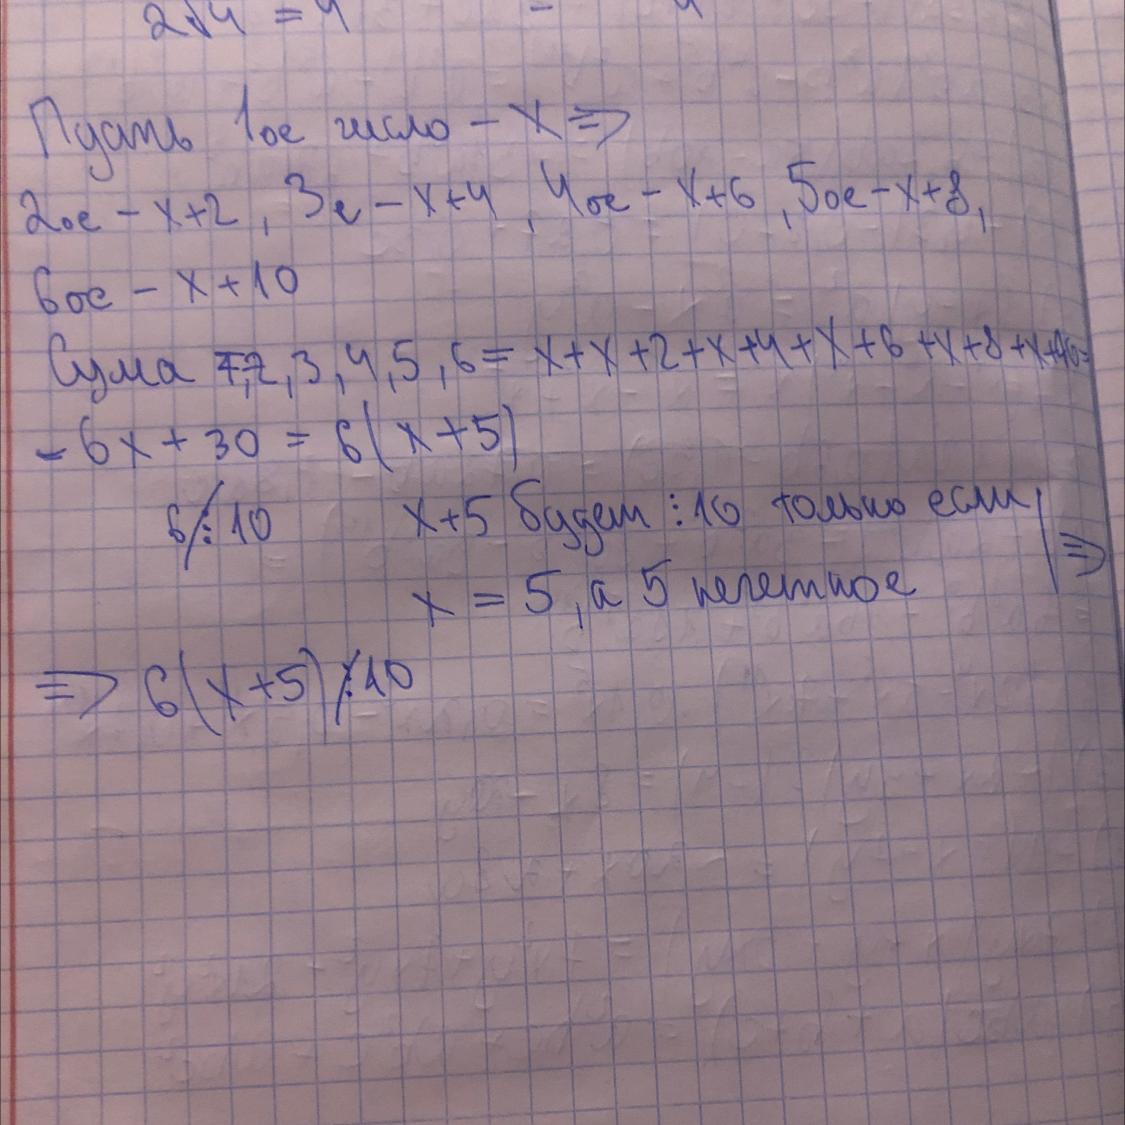 2√4 = 4 =
Пусть 1ое число – x ⇒
2ое – x+2, 3е – x+4, 4ое – x+6, 5ое – x+8,
6ое – x+10
Сума 1,2,3,4,5,6 = x+x+2+x+4+x+6+x+8+x+10=
= 6x + 30 = 6(x+5)
6 ⋮̸ 10 x+5 будет ⋮ 10 только если
x = 5, а 5 нечетное ⇒
⇒ 6(x+5) ⋮̸ 10